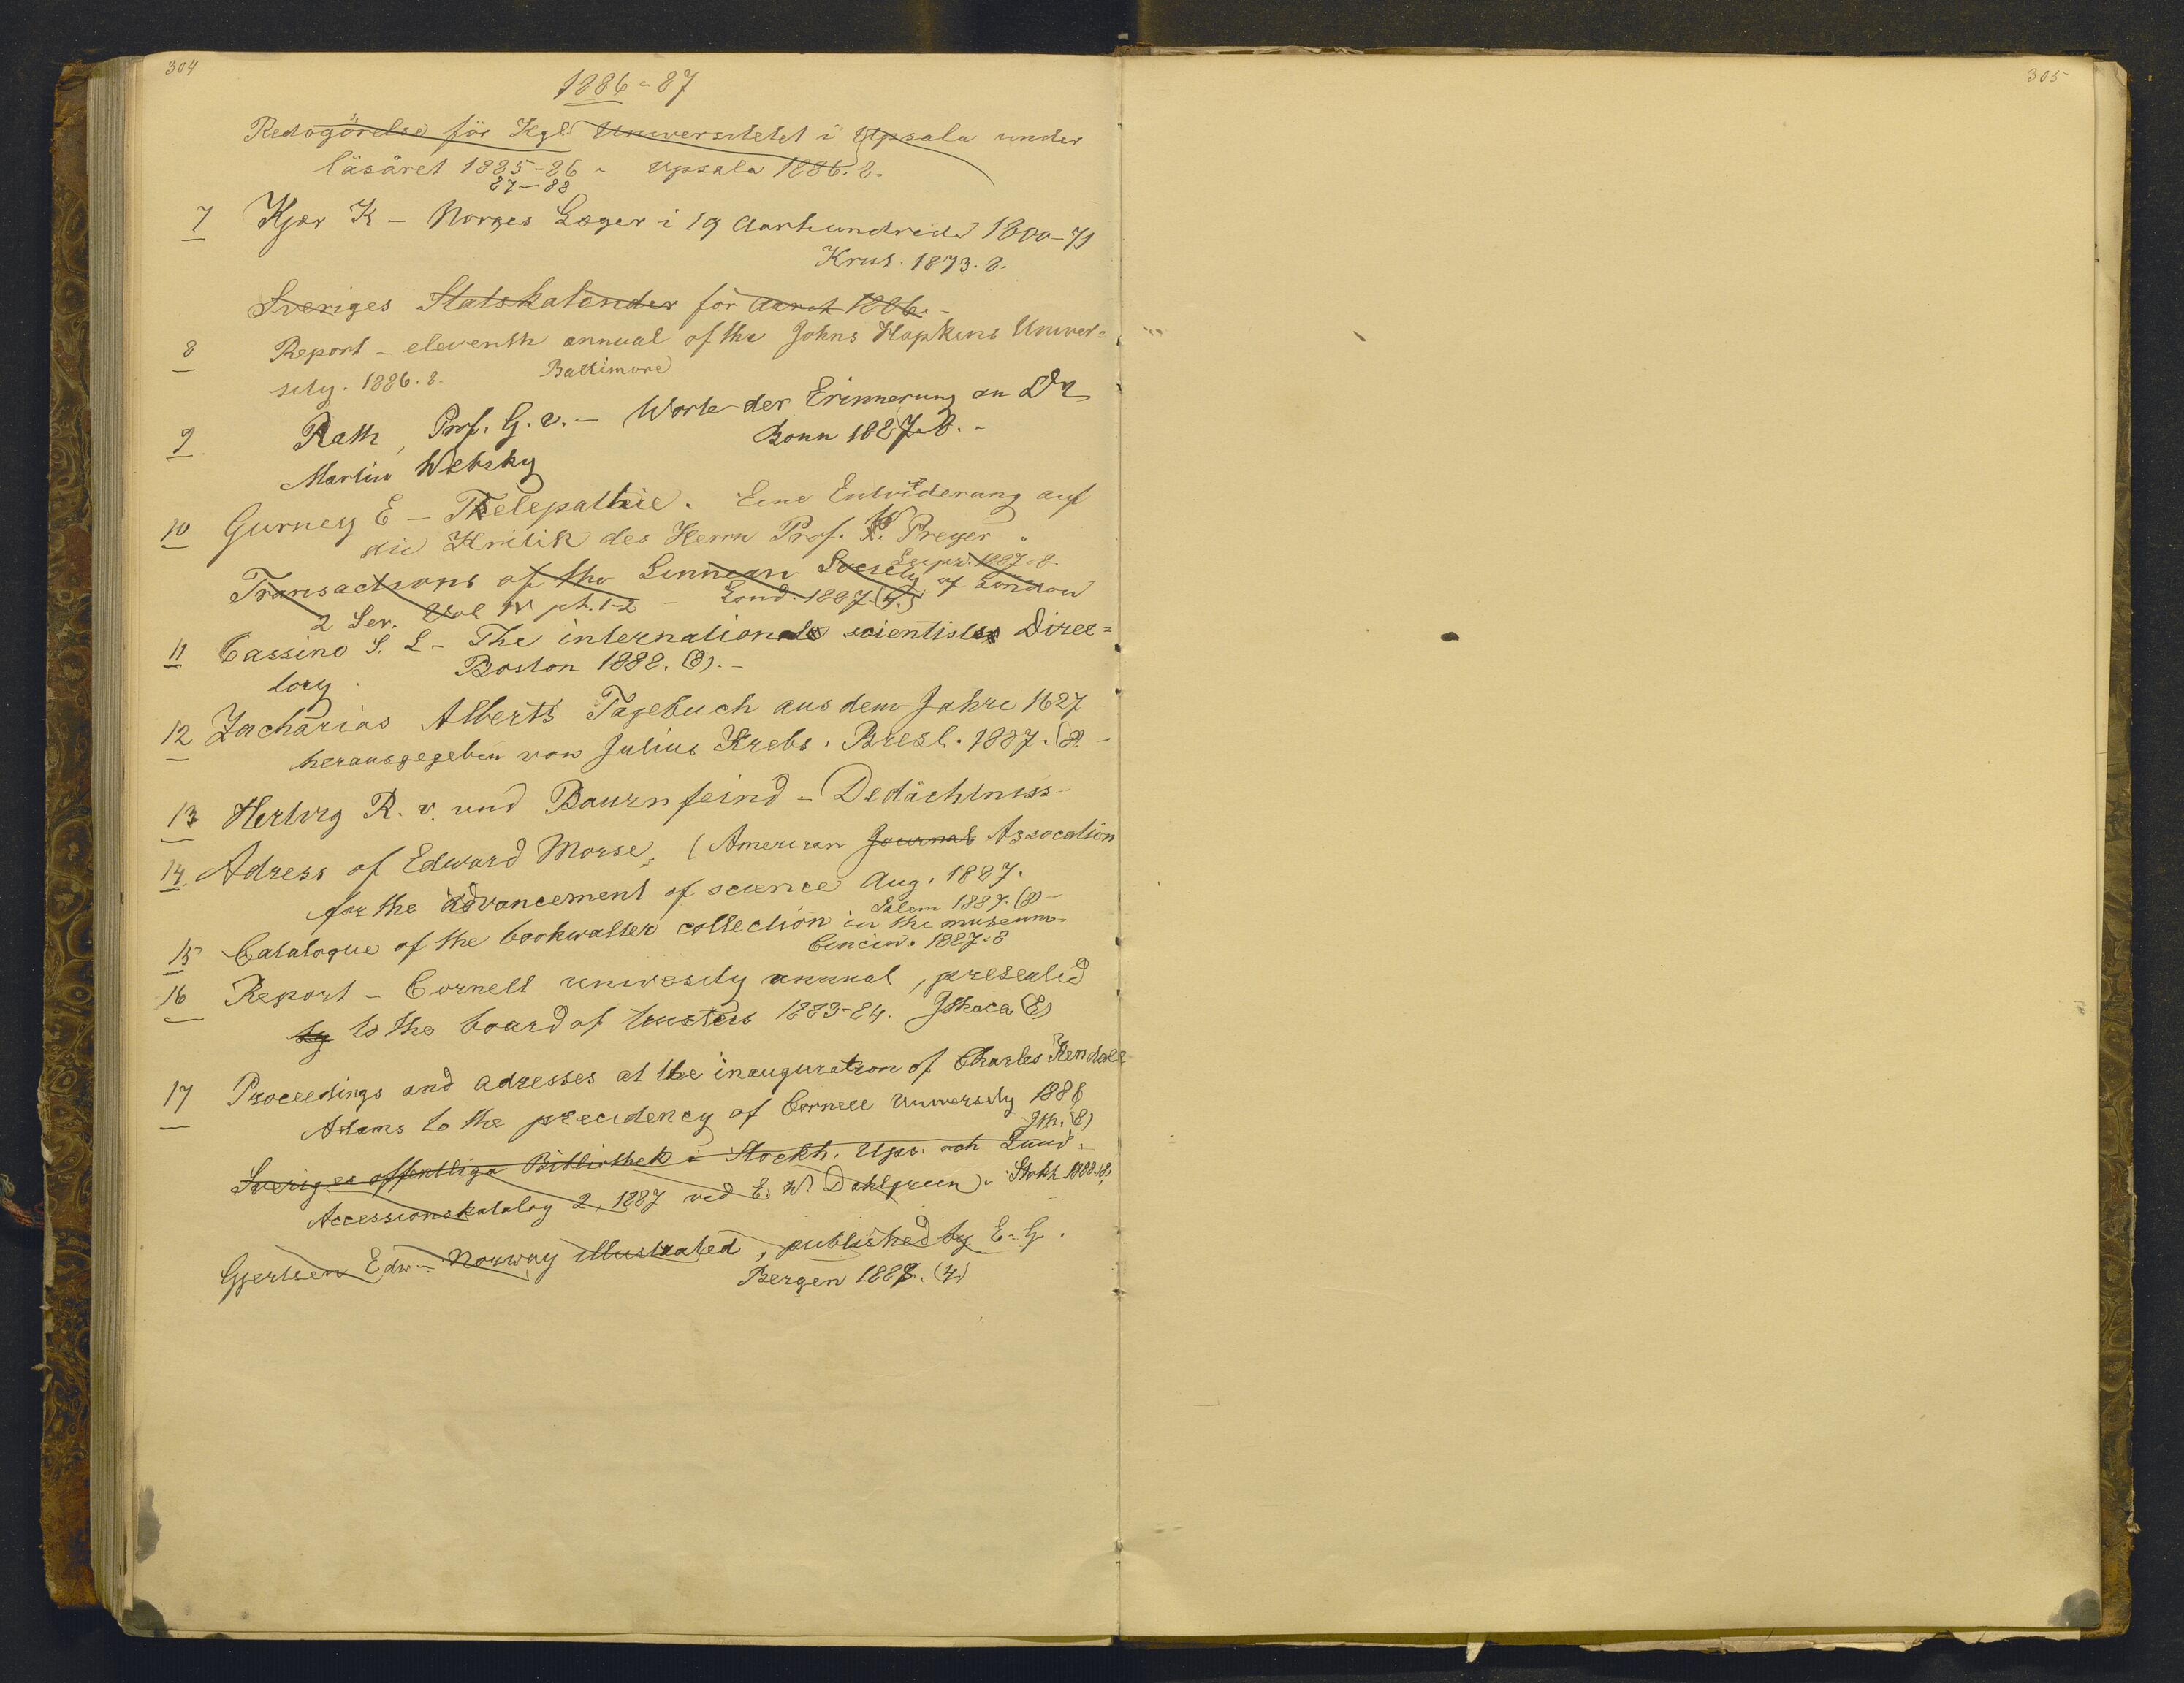 304
305
1886-87
Redogörelse för Kgl Universitetet i Upsala under
läsåret 1885-86 - Upsala 1886. 8.
87-88
7 Kjær K - Norges Læger i 19 Aarhundrede 1800-71
Krus. 1873. 8.
Sveriges Statskalender för Året 1886. -
8 Report - eleventh annual of the Johns Hopkins Univer=
sity. 1886. 8. Baltimore
9 Rath, Prof. G. v. - Worte der Erinnerung an Dr
Martin Websky Bonn 1887. 8. -
10 Gurney E - Telepathie. Eine Entwiderung auf
die Kritik des Herrn Prof. W. Preyer "
Leipz. 1887. 8.
Transactions of the Linnean Society of London
2 Ser. Vol IV pt. 1-2 - Lond. 1887. (4.)
11 Cassino S. E - The international scientists Direc=
tory. Boston 1888. (8). -
12 Zacharias Alberts Tagebuch aus dem Jahre 1627
herausgegeben von Julius Krebs. Bresl. 1887. (8) -
13 Hertwig R. v. und Baurnfeind - Dedächtniss
14. Adress of Edward Morse, (American Journal Assocation
for the advancement of science Aug. 1887.
Salem 1887. (8) -
15 Catalogue of the bookwalter collection in the museum-
Cincin. 1887. 8
16 Report - Cornell unversity annual, presented
by to the board of trusters 1883-84. Ithaca (8)
17 Proceedings and adresses at the inauguration of Charles Kendall
Adams to the precidency of Cornell University 1886
Ith. (8)
Sveriges offentliga Bibliothek i Stockh. Ups. och Lund.
Accessionskatalog 2, 1887 ved E. W. Dahlgreen. Stokh 1888. (8)
Gjertsen Edw - Norway illustrated, published by E. G.
Bergen 1888. (4)